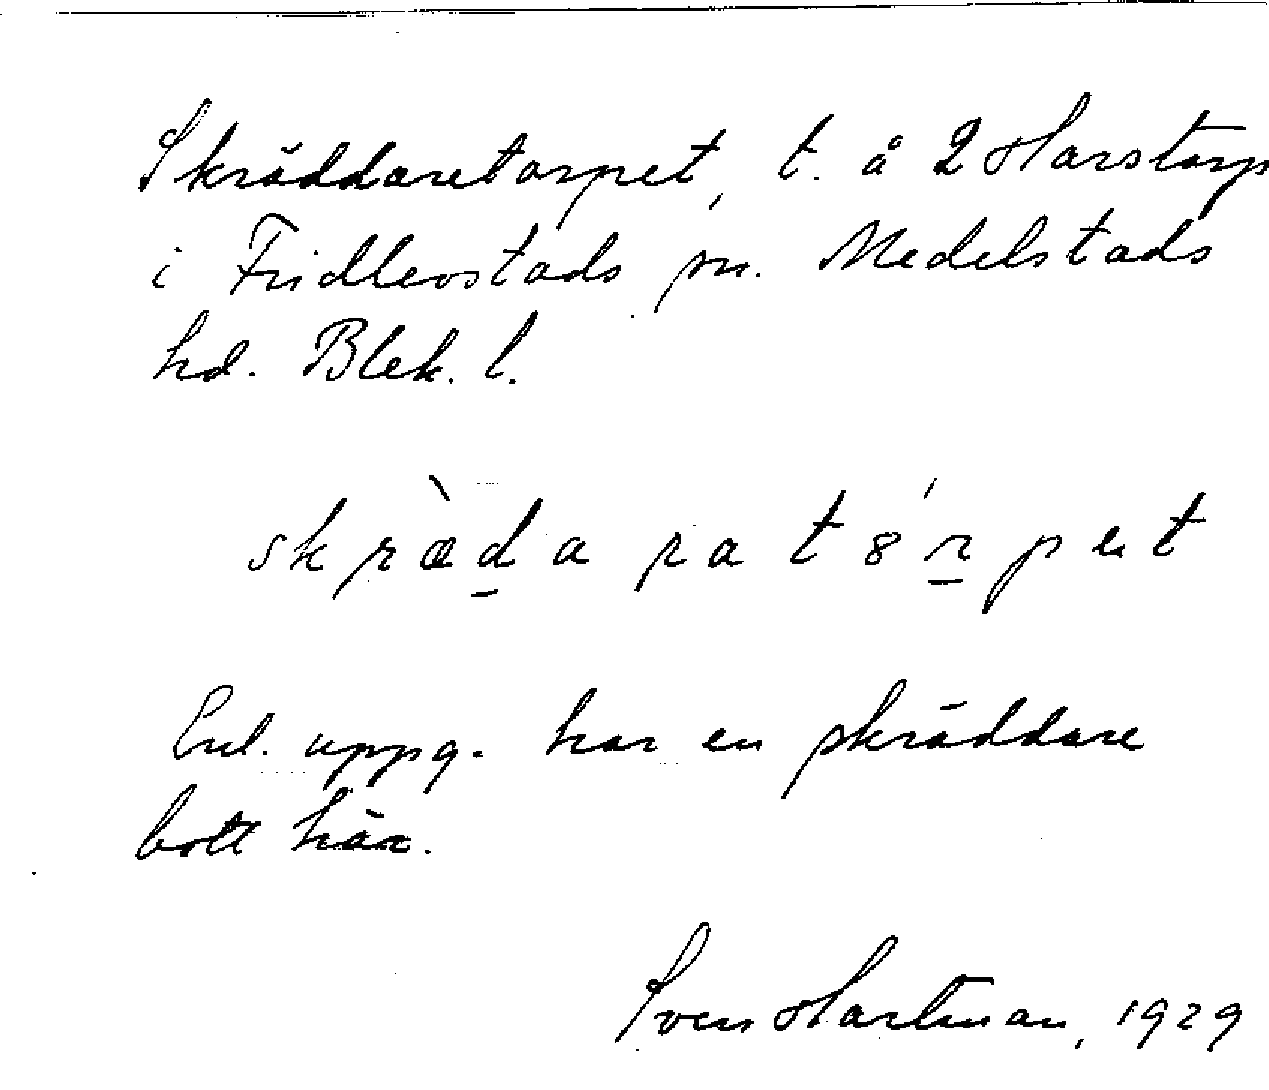 Skräddaretorpet, t. å 2 Harstorp
i Fridlevstads sn. Medelstads
hd. Blek. l.
skræ̀da rat8́rpet
Enl. uppg. har en skräddare
bott här.
Sven Hartman, 1929